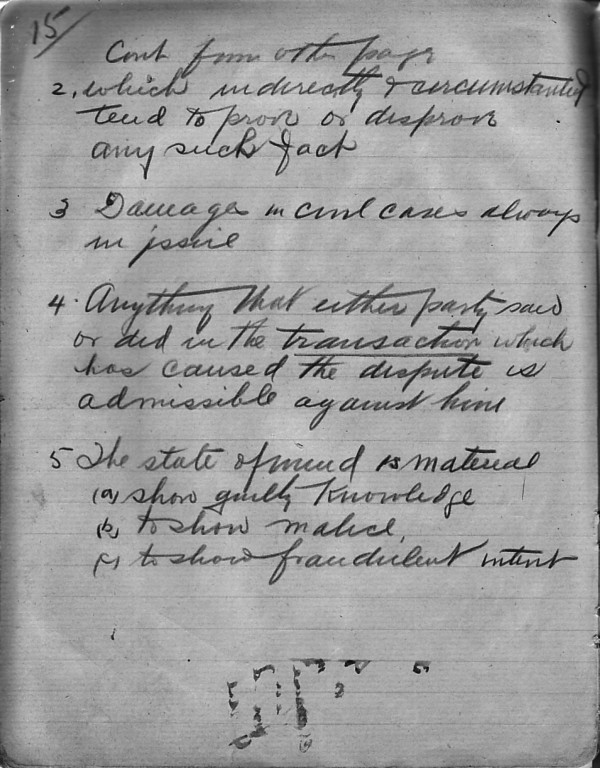 15
Cont from other page
2. which indirectly & circumstantial
tend to prove or disprove
any such fact
3 Damages in civil cases always
in issue
4. Anything that either party said
or did in the transaction which
has caused the dispute is
admissible against him
5 The state of mind is material
(a) show guilty knowledge
(b) to show malice,
(c) to show fraudulent intent